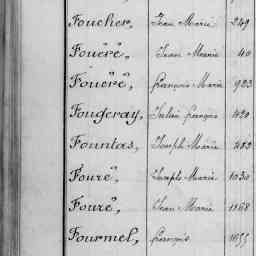 Foucher, Jean Marie 249
Fouéré, Jean Marie 40
Fouéré, François Marie 923
Fougeray, Julien François 420
Fountas, Joseph Marie 482
Fouré, Joseph Marie 1030
Fouré, Jean Marie 1168
Fourmel, François 1655